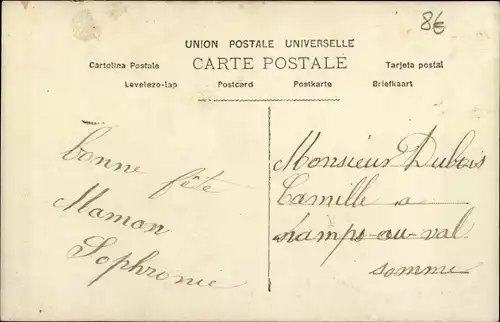 8€
UNION POSTALE UNIVERSELLE
CARTE POSTALE
Cartolina Postale
Tarjeta postal
Levelezo-lap
Postcard
Postkarte
Briefkaart
bonne fête
Maman
Sophronie
Monsieur Dubois
Camille a
hamps-au-val
somme